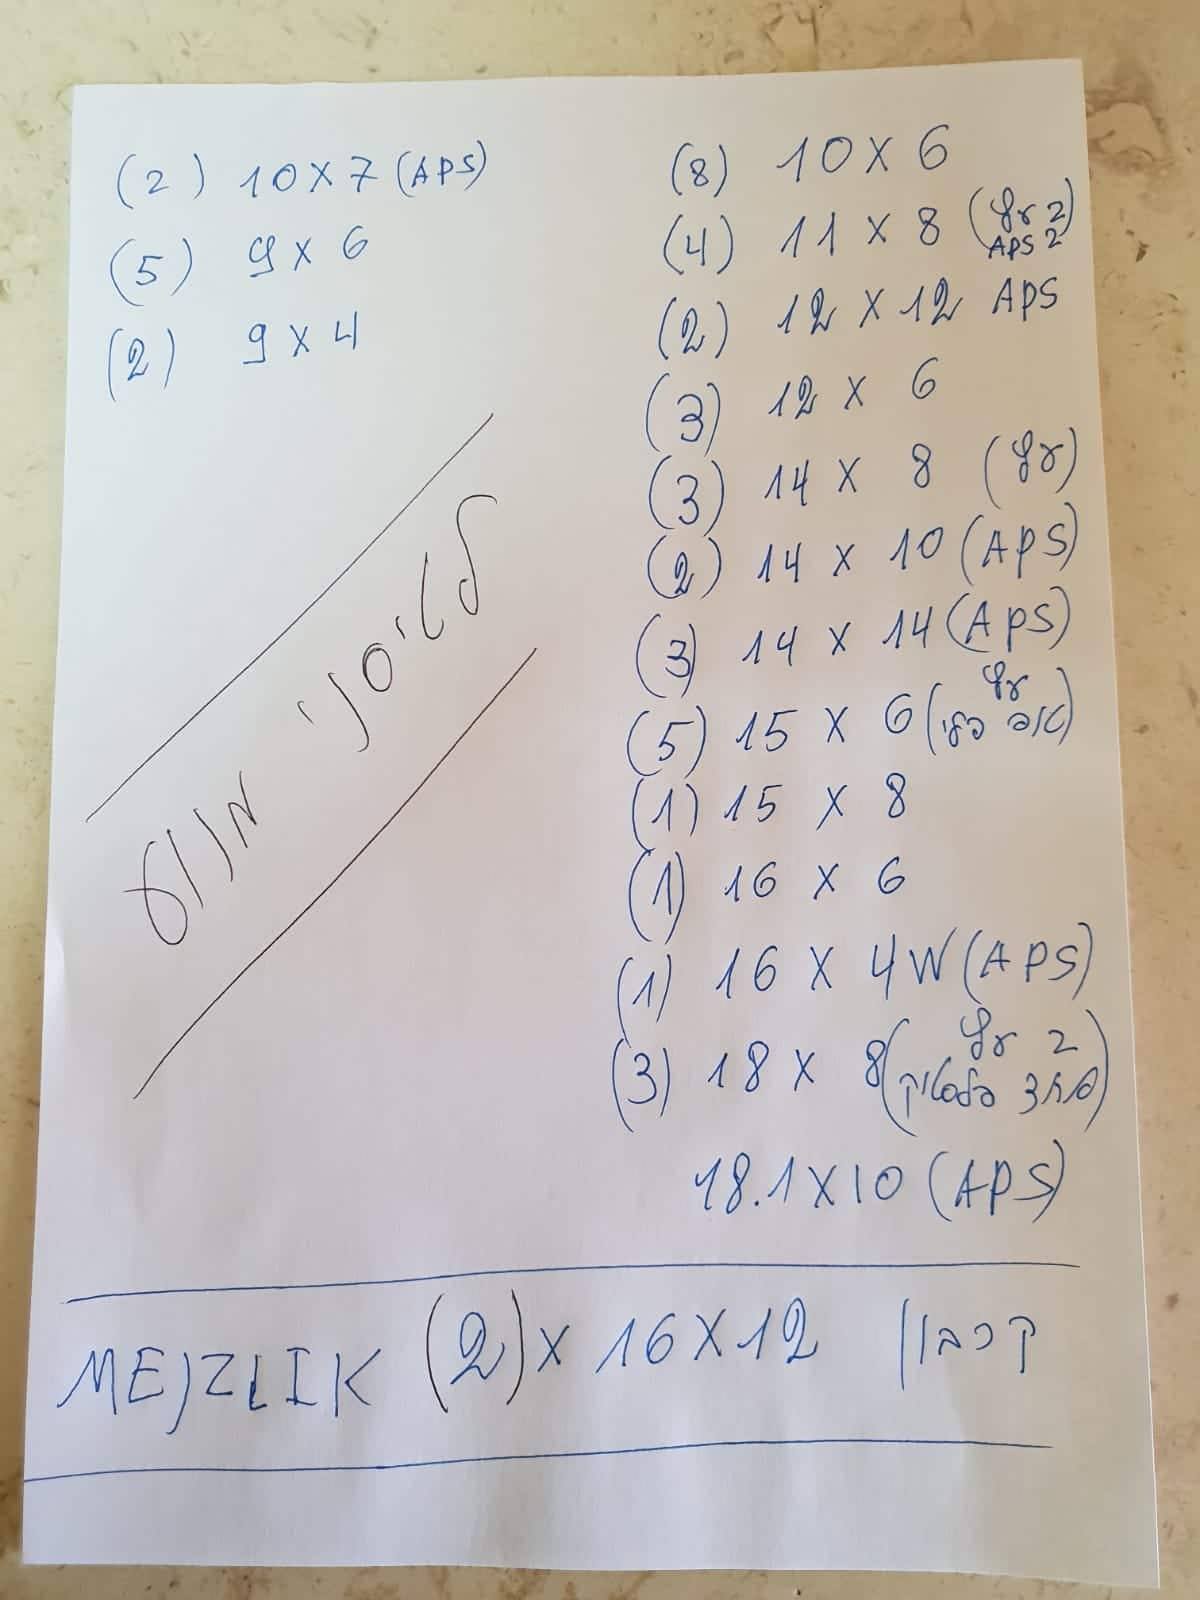 (2) 10 X 7 (APS)
(5) 9 X 6
(2) 9 X 4
(8) 10 X 6
(4) 11 X 8 (עץ 2
APS 2)
(2) 12 X 12 APS
(3) 12 X 6
(3) 14 X 8 (עץ)
(2) 14 X 10 (APS)
(3) 14 X 14 (APS)
(5) 15 X 6 (עץ
(1) 15 X 8
(1) 16 X 6
(1) 16 X 4W (APS)
(3) 18 X 8 (עץ 2
אחד פלסטיק)
18.1 X 10 (APS)
לניסוי מנוע
MEJZLIK (2) X 16 X 12 קרבון